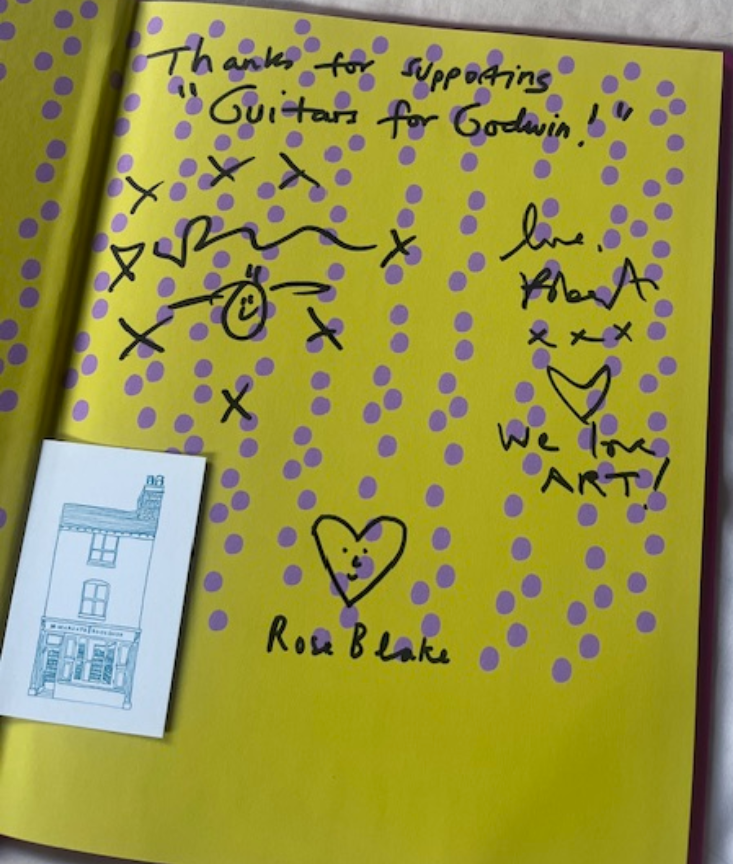 Thanks for supporting
"Guitars for Godwin!"
x x x
x
x x
x
love.
Robert
x x x
We love
ART!
Rose Blake